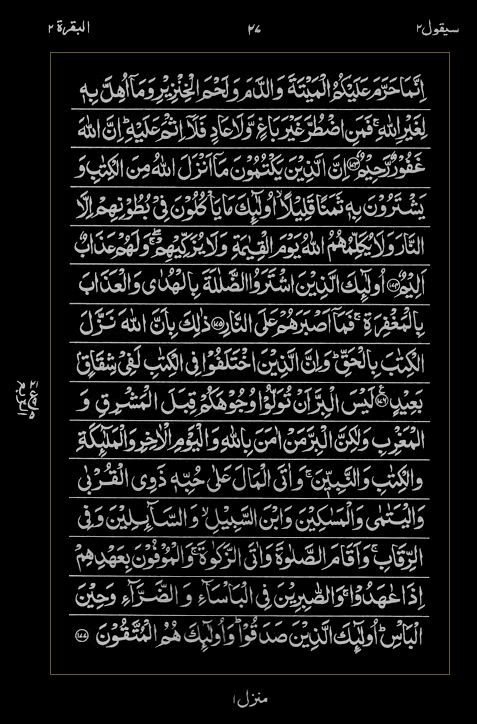 سيقول ٢ ٢٧ البقرة ٢
اِنَّمَا حَرَّمَ عَلَيْكُمُ الْمَيْتَةَ وَالدَّمَ وَلَحْمَ الْخِنْزِيْرِ وَمَاۤ اُهِلَّ بِهٖ
لِغَيْرِ اللّٰهِ ۚ فَمَنِ اضْطُرَّ غَيْرَ بَاغٍ وَّلَا عَادٍ فَلَاۤ اِثْمَ عَلَيْهِ ؕ اِنَّ اللّٰهَ
غَفُوْرٌ رَّحِيْمٌ ﴿۱۷۳﴾ اِنَّ الَّذِيْنَ يَكْتُمُوْنَ مَاۤ اَنْزَلَ اللّٰهُ مِنَ الْكِتٰبِ وَ
يَشْتَرُوْنَ بِهٖ ثَمَنًا قَلِيْلًا ۙ اُولٰٓئِكَ مَا يَاْكُلُوْنَ فِيْ بُطُوْنِهِمْ اِلَّا
النَّارَ وَلَا يُكَلِّمُهُمُ اللّٰهُ يَوْمَ الْقِيٰمَةِ وَلَا يُزَكِّيْهِمْ ۖۚ وَلَهُمْ عَذَابٌ
اَلِيْمٌ ﴿۱۷۴﴾ اُولٰٓئِكَ الَّذِيْنَ اشْتَرَوُا الضَّلٰلَةَ بِالْهُدٰى وَالْعَذَابَ
بِالْمَغْفِرَةِ ۚ فَمَاۤ اَصْبَرَهُمْ عَلَى النَّارِ ﴿۱۷۵﴾ ذٰلِكَ بِاَنَّ اللّٰهَ نَزَّلَ
الْكِتٰبَ بِالْحَقِّ ؕ وَاِنَّ الَّذِيْنَ اخْتَلَفُوْا فِي الْكِتٰبِ لَفِيْ شِقَاقٍۭ
بَعِيْدٍ ﴿۱۷۶﴾ لَيْسَ الْبِرَّ اَنْ تُوَلُّوْا وُجُوْهَكُمْ قِبَلَ الْمَشْرِقِ وَ
الْمَغْرِبِ وَلٰكِنَّ الْبِرَّ مَنْ اٰمَنَ بِاللّٰهِ وَالْيَوْمِ الْاٰخِرِ وَالْمَلٰٓئِكَةِ
وَالْكِتٰبِ وَالنَّبِيّٖنَ ۚ وَاٰتَى الْمَالَ عَلٰى حُبِّهٖ ذَوِي الْقُرْبٰى
وَالْيَتٰمٰى وَالْمَسٰكِيْنَ وَابْنَ السَّبِيْلِ ۙ وَالسَّآئِلِيْنَ وَفِي
الرِّقَابِ ۚ وَاَقَامَ الصَّلٰوةَ وَاٰتَى الزَّكٰوةَ ۚ وَالْمُوْفُوْنَ بِعَهْدِهِمْ
اِذَا عٰهَدُوْا ۚ وَالصّٰبِرِيْنَ فِي الْبَاْسَآءِ وَالضَّرَّآءِ وَحِيْنَ
الْبَاْسِ ؕ اُولٰٓئِكَ الَّذِيْنَ صَدَقُوْا ؕ وَاُولٰٓئِكَ هُمُ الْمُتَّقُوْنَ ﴿۱۷۷﴾
منزل ١